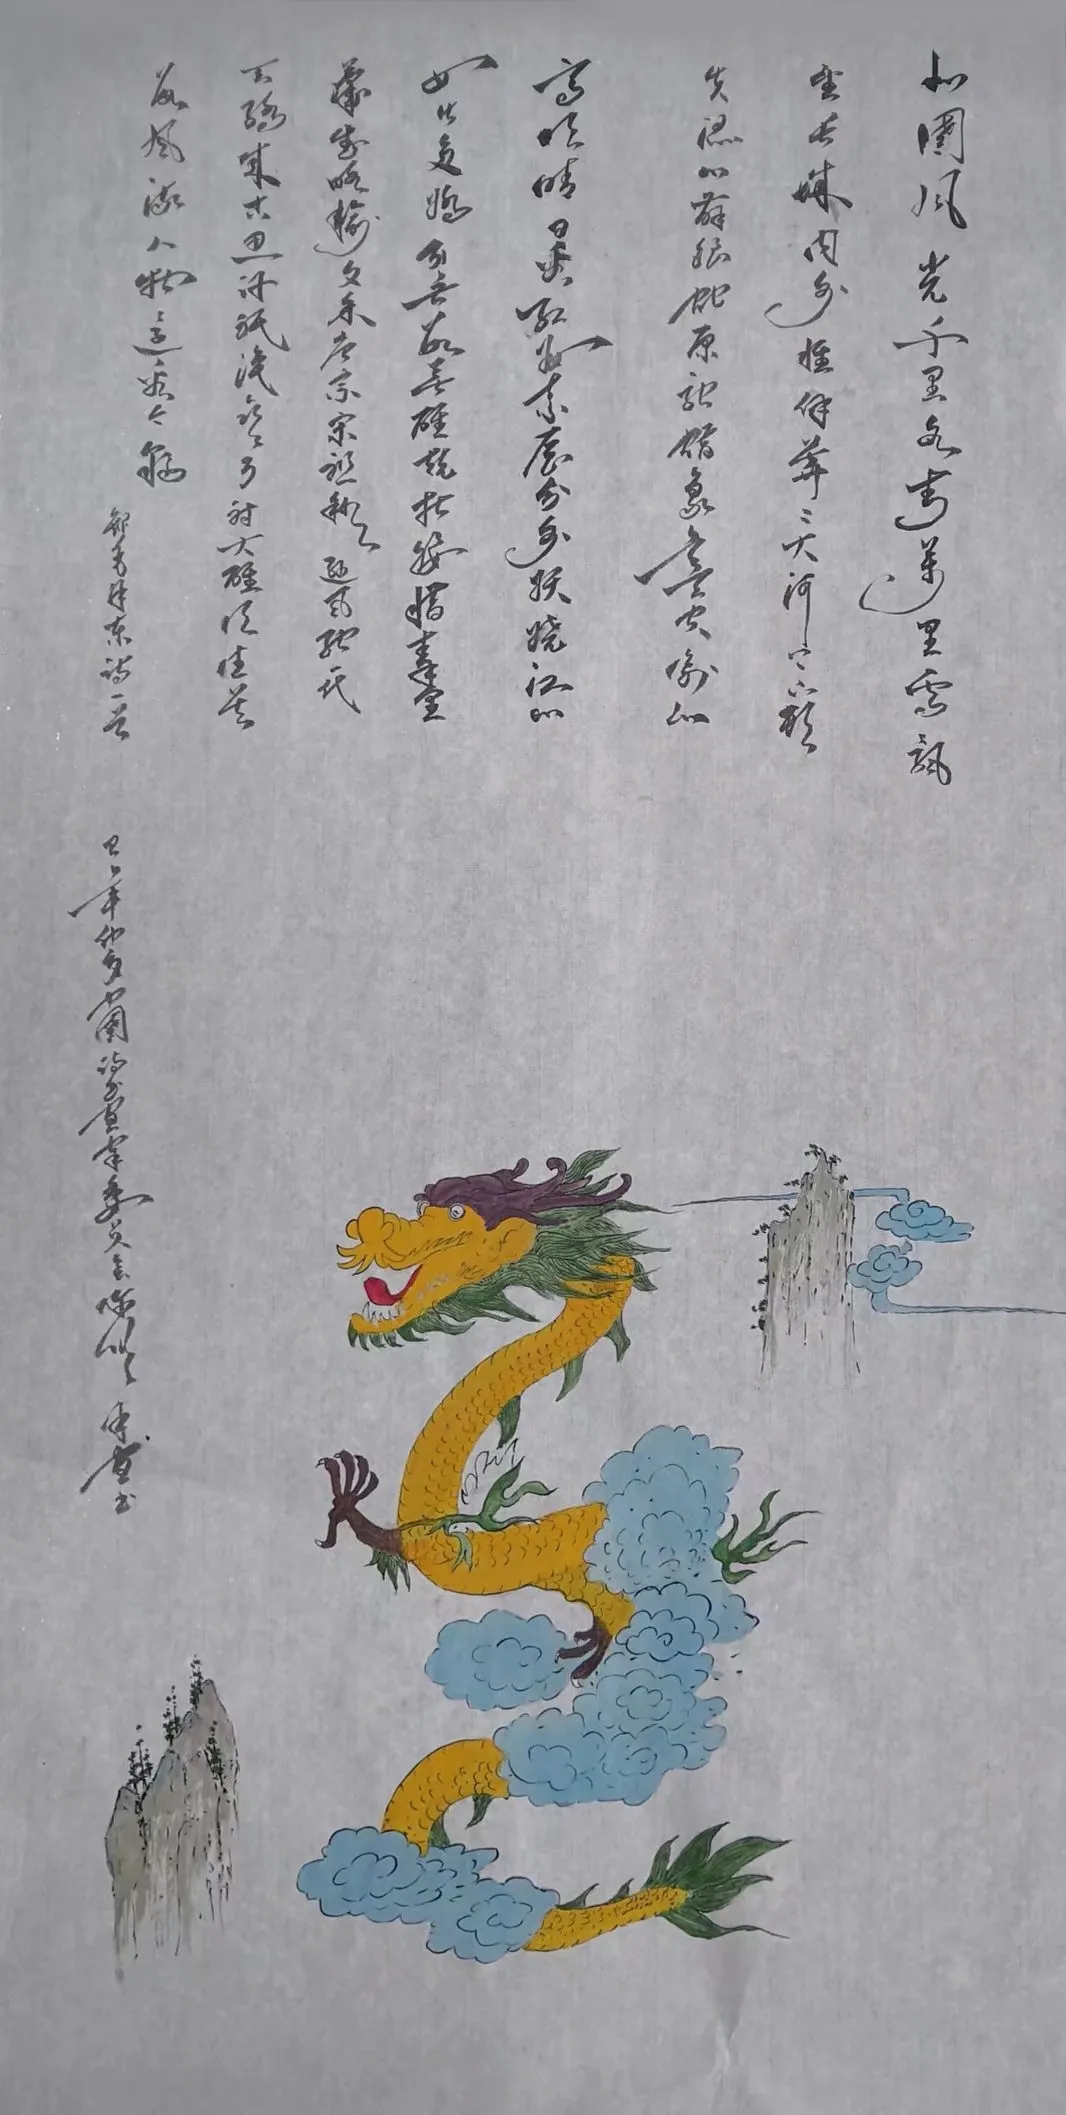 北国风光千里冰封万里雪飘
望长城内外惟余莽莽大河上下顿
失滔滔山舞银蛇原驰蜡象欲与天公
高须晴日看红妆素裹分外妖娆江山
如此多娇引无数英雄竞折腰惜秦皇
汉武略输文采唐宗宋祖稍逊风骚一代
天骄成吉思汗只识弯弓射大雕俱往矣
数风流人物还看今朝
毛泽东诗一首
年 国诗书画家委员会 书